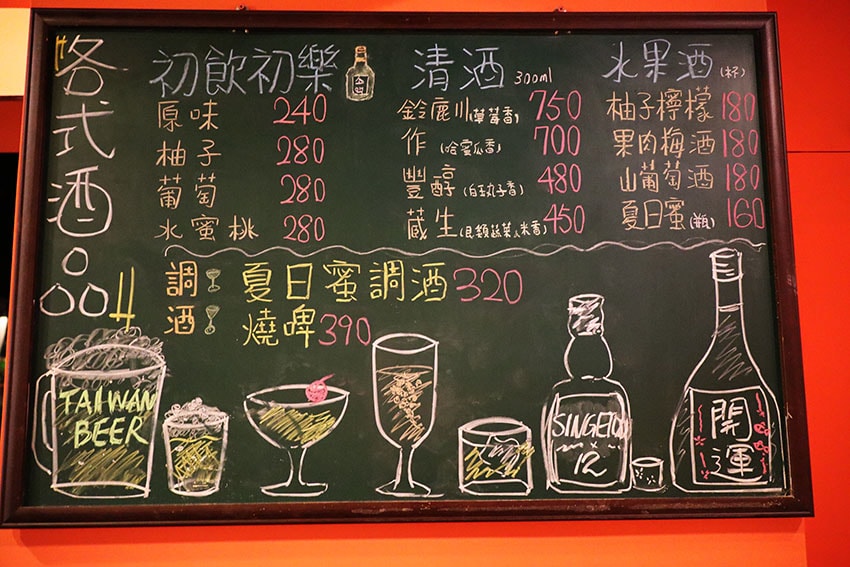 各式酒品
初飲初樂
原味 240
柚子 280
葡萄 280
水蜜桃 280
清酒 300ml
鈴鹿川(草莓香) 750
作(哈蜜瓜香) 700
豐醇(白玉丸子香) 480
蔵生(良類蔬菜、米香) 450
水果酒(杯)
柚子檸檬 180
果肉梅酒 180
山葡萄酒 180
夏日蜜(瓶) 160
調酒
夏日蜜調酒 320
燒啤 390
TAIWAN
BEER
SINGETON
12
開運